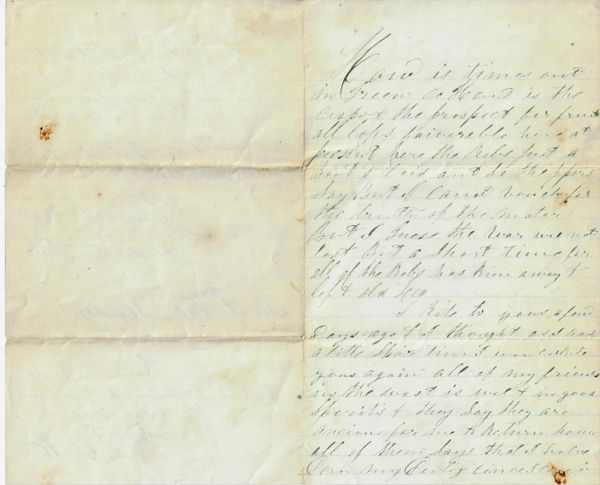 Haw is times out
in Green Co & Haw is the
the prospect for fruit
all lofs faiverable here at
present here the Rebs just a
But I
Say But I cand voich for
the truth of the mater
But I Guess the War we not
last But a Short time for
all of the Rebs has Run away &
left old
I Rite to yous a few
Days ago & I thought as I had
a little Spair time I would Rite
yous again all of my friends
in the west is well & in good
Sperits & they Say they are
ancious for me to Return home
all of them Says that I have
Don my Duty